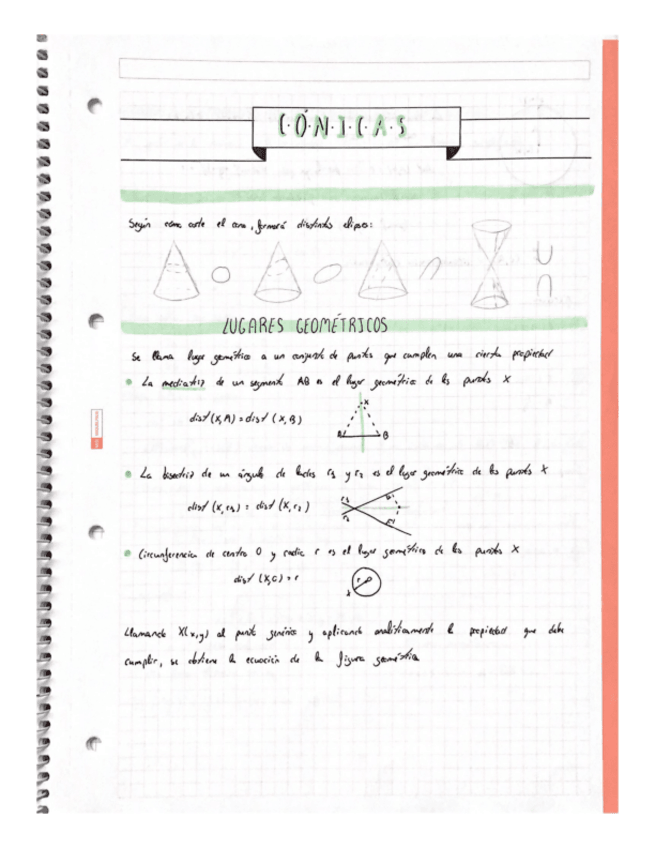 C·Ó·N·I·C·A·S
Según cómo corte el cono, formará distintas elipses:
LUGARES GEOMÉTRICOS
Se llama lugar geométrico a un conjunto de puntos que cumplen una cierta propiedad
La mediatriz de un segmento AB es el lugar geométrico de los puntos X
dist (X,A) = dist (X,B)
X
A
B
La bisectriz de un ángulo de lados r1 y r2 es el lugar geométrico de los puntos X
dist (X, r1) = dist (X, r2)
r1
r2
Circunferencia de centro O y radio r es el lugar geométrico de los puntos X
dist (X,O) = r
r
O
x
Llamando X(x,y) al punto genérico y aplicando analíticamente la propiedad que debe
cumplir, se obtiene la ecuación de la figura geométrica